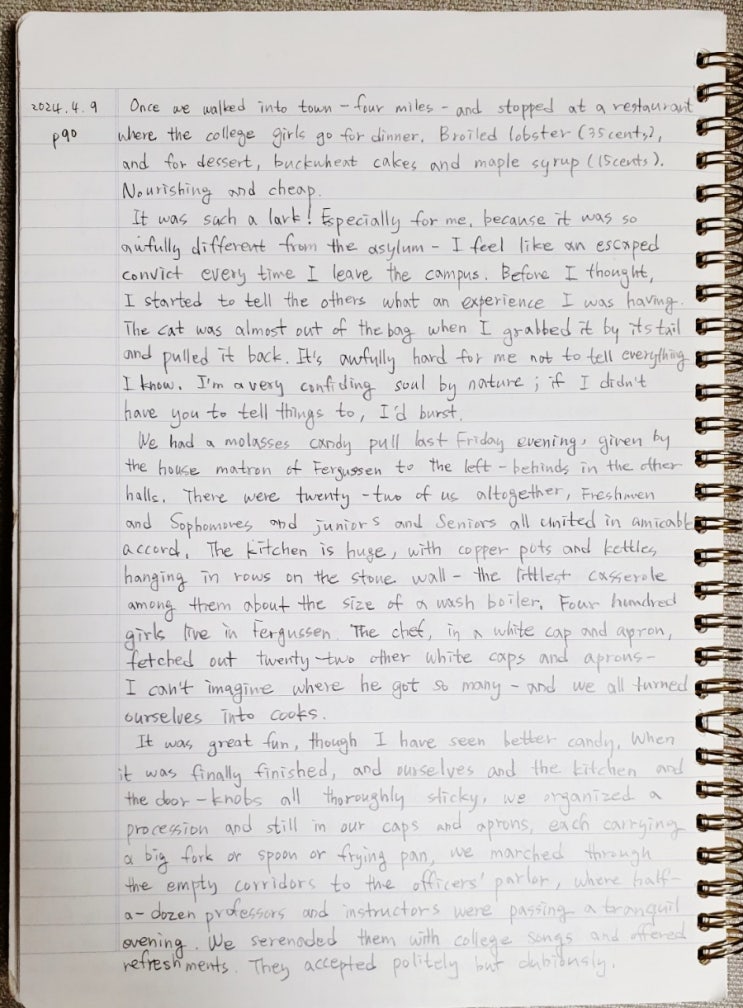 2024.4.9
p90
Once we walked into town - four miles - and stopped at a restaurant
where the college girls go for dinner. Broiled lobster (35cents),
and for dessert, buckwheat cakes and maple syrup (15cents).
Nourishing and cheap.
It was such a lark! Especially for me, because it was so
awfully different from the asylum - I feel like an escaped
convict every time I leave the campus. Before I thought,
I started to tell the others what an experience I was having.
The cat was almost out of the bag when I grabbed it by its tail
and pulled it back. It's awfully hard for me not to tell everything
I know. I'm a very confiding soul by nature; if I didn't
have you to tell things to, I'd burst.
We had a molasses candy pull last Friday evening, given by
the house matron of Fergussen to the left-behinds in the other
halls. There were twenty-two of us altogether, Freshmen
and Sophomores and juniors and Seniors all united in amicable
accord. The kitchen is huge, with copper pots and kettles
hanging in rows on the stone wall - the littlest casserole
among them about the size of a wash boiler. Four hundred
girls live in Fergussen. The chef, in a white cap and apron,
fetched out twenty-two other white caps and aprons-
I can't imagine where he got so many - and we all turned
ourselves into cooks.
It was great fun, though I have seen better candy. When
it was finally finished, and ourselves and the kitchen and
the door-knobs all thoroughly sticky, we organized a
procession and still in our caps and aprons, each carrying
a big fork or spoon or frying pan, we marched through
the empty corridors to the officers' parlor, where half-
a-dozen professors and instructors were passing a tranquil
evening. We serenaded them with college songs and offered
refreshments. They accepted politely but dubiously.